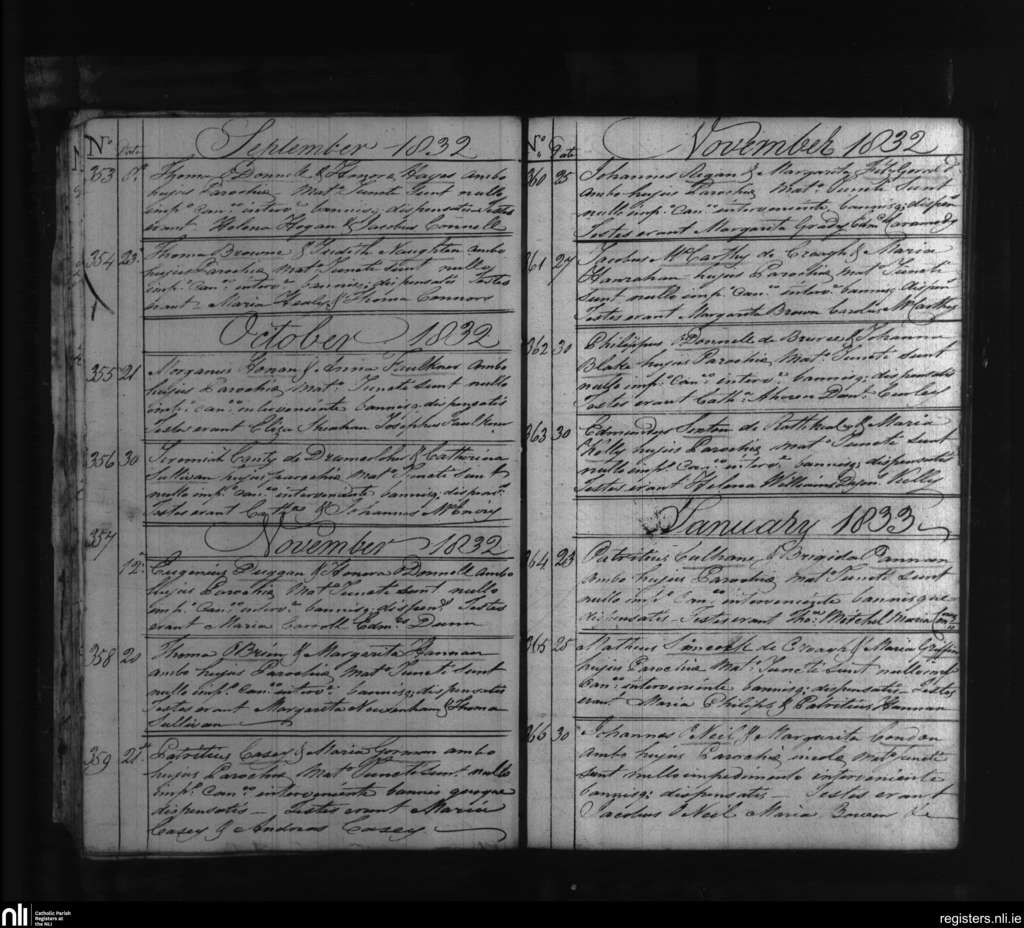 No Date September 1832
353 8th Thoma O'Donnell & Honora Hayes ambo
hujus Parochiæ Mato Juncti sunt nullo
impo Canco intervo bannisq; dispensatis Testes
erant Helena Hogan & Jacobus Connell
354 23 Thoma Browne & Judith Naughten ambo
hujus Parochiæ Mato Juncti sunt nullo
impo Canco intervo bannisq; dispensatis Testes
erant Maria Healy & Thoma Connors
October 1832
355 21 Morganus Honan & Anna Faulkner ambo
hujus Parochiæ Mato Juncti sunt nullo
impo Canco interveniente bannisq; dispensatis
Testes erant Eliza Sheahan Josephus Faulkner
356 30 Jeremiah Canty de & Catherina
Sullivan hujus parochiæ Mato Juncti sunt
nullo impo Canco interveniente bannisq;
Testes erant & Johannes McEnery
357 November 1832
12th Eugenius Duggan & Honora O'Donnell ambo
hujus Parochiæ Mato Juncti sunt nullo
impo Canco intervo bannisq; Testes
erant Maria Carroll Edmd Dunn
358 20 Thoma O'Brien & Margarita Hannan
ambo hujus Parochiæ Mato Juncti sunt
nullo impo Canco intervo bannisq; dispensatis
Testes erant Margareta Neuxenham & Thoma
Sullivan
359 21st Patritius Casey & Maria Gorman ambo
hujus Parochiæ Mato Juncti sunt nullo
impo Canco interveniente bannis quoque
dispensatis – Testes erant Maria
Casey & Andreas Casey
No Date November 1832
360 25 Johannes Regan & Margarita FitzGerald
ambo hujus Parochiæ Mato Juncti sunt
nullo impo Canco interveniente bannisq;
Testes erant Margarita Grady
361 27 Jacobus McCarthy de Craagh & Maria
Hanrahan hujus Parochiæ Mato Juncti
sunt nullo impo Canco intervo bannisq;
Testes erant Margarita Brown McCarthy
362 30 Philippus O'Donnell de Bruree & Johanna
Blake hujus Parochiæ Mato Juncti sunt
nullo impo Canco intervo bannisq; dispensatis
Testes erant Cathe Ahern Danl
363 30 Edmundus de Rathkeal & Maria
Kelly hujus Parochiæ Mato Juncti sunt
nullo impo Canco intervo bannisq; dispensatis
Testes erant Helena Williams Kelly
January 1833
364 23 Patritius Culhane & Brigida Hannan
ambo hujus Parochiæ Mato Juncti sunt
nullo impo Canco interveniente bannisque
dispensatis – Testes erant Thos Mitchel Maria
365 25 Matheus de Croagh & Maria Griffin
hujus Parochiæ Mato Juncti sunt nullo impo
Canco interveniente bannisq; dispensatis – Testes
erant Maria Philips & Patritius Hannan
366 30 Johannes O'Neil & Margarita Condon
ambo hujus Parochiæ incolæ Mato Juncti
sunt nullo impedimento interveniente
bannisq; dispensatis – Testes erant
Jacobus O'Neil Maria Bowen &c
nli Catholic Parish
Registers at
the NLI
registers.nli.ie